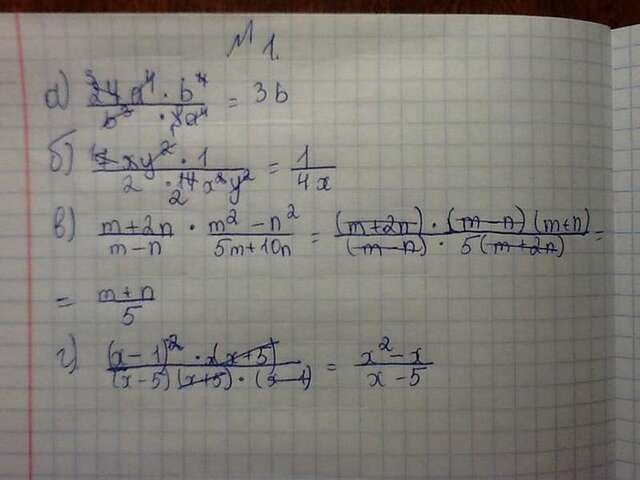 № 1.
а) 24 a⁴ · b⁴ / b³ · 8a⁴ = 3b
б) 7xy² · 1 / 2 · 14x²y² = 1 / 4x
в) m+2n / m−n · m²−n² / 5m+10n = (m+2n) · (m−n)(m+n) / (m−n) · 5(m+2n) =
= m+n / 5
г) (x−1)² · x(x+5) / (x−5)(x+5) · (x−1) = x²−x / x−5